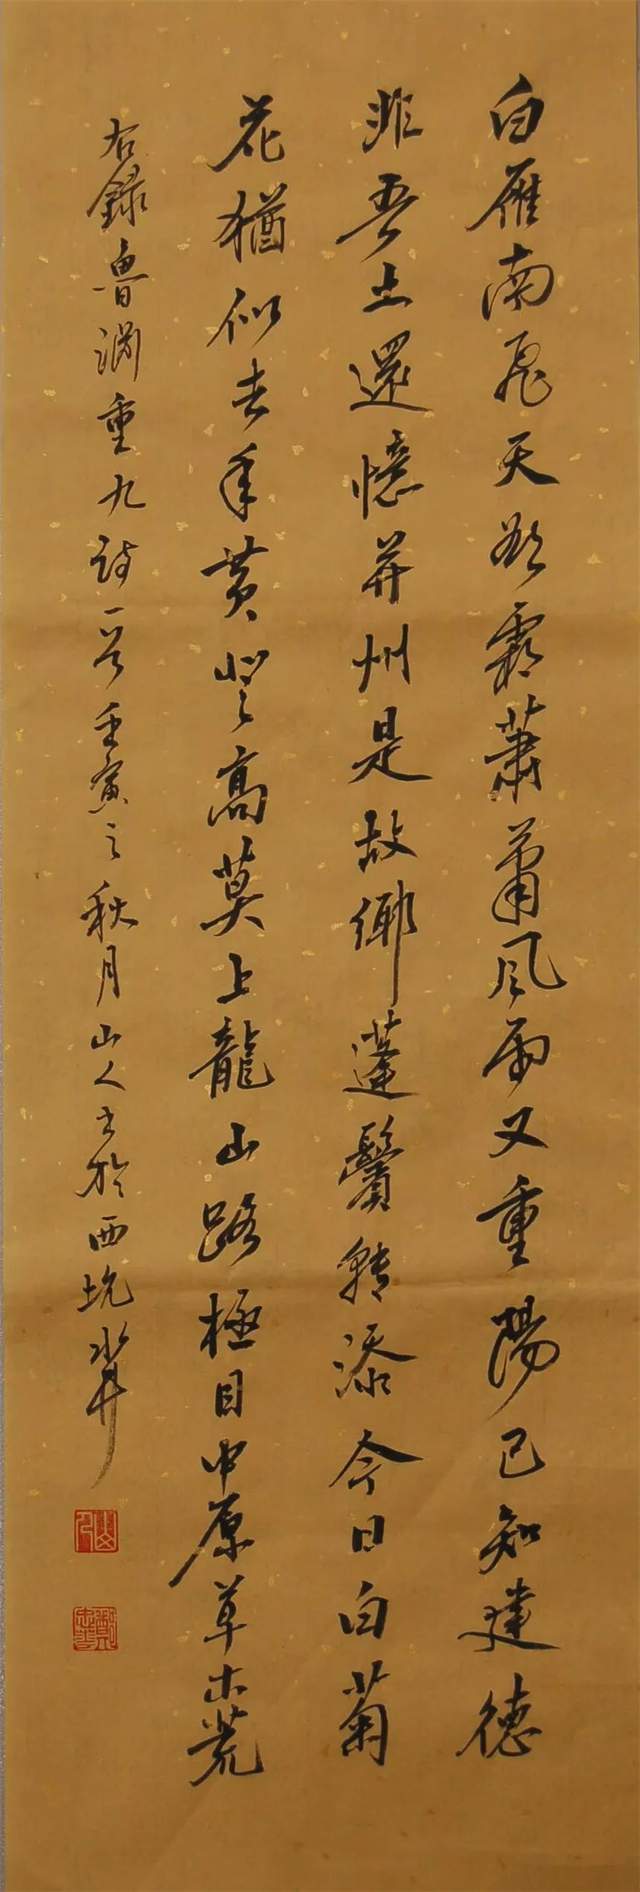 白雁南飛天欲霜蕭蕭風雨又重陽已知建德
非吾土還憶并州是故鄉蓬鬢轉添今日白菊
花猶似去年黃登高莫上龍山路極目中原草木荒
右錄魯淵重九詩一首壬寅之秋月山人書於西坑